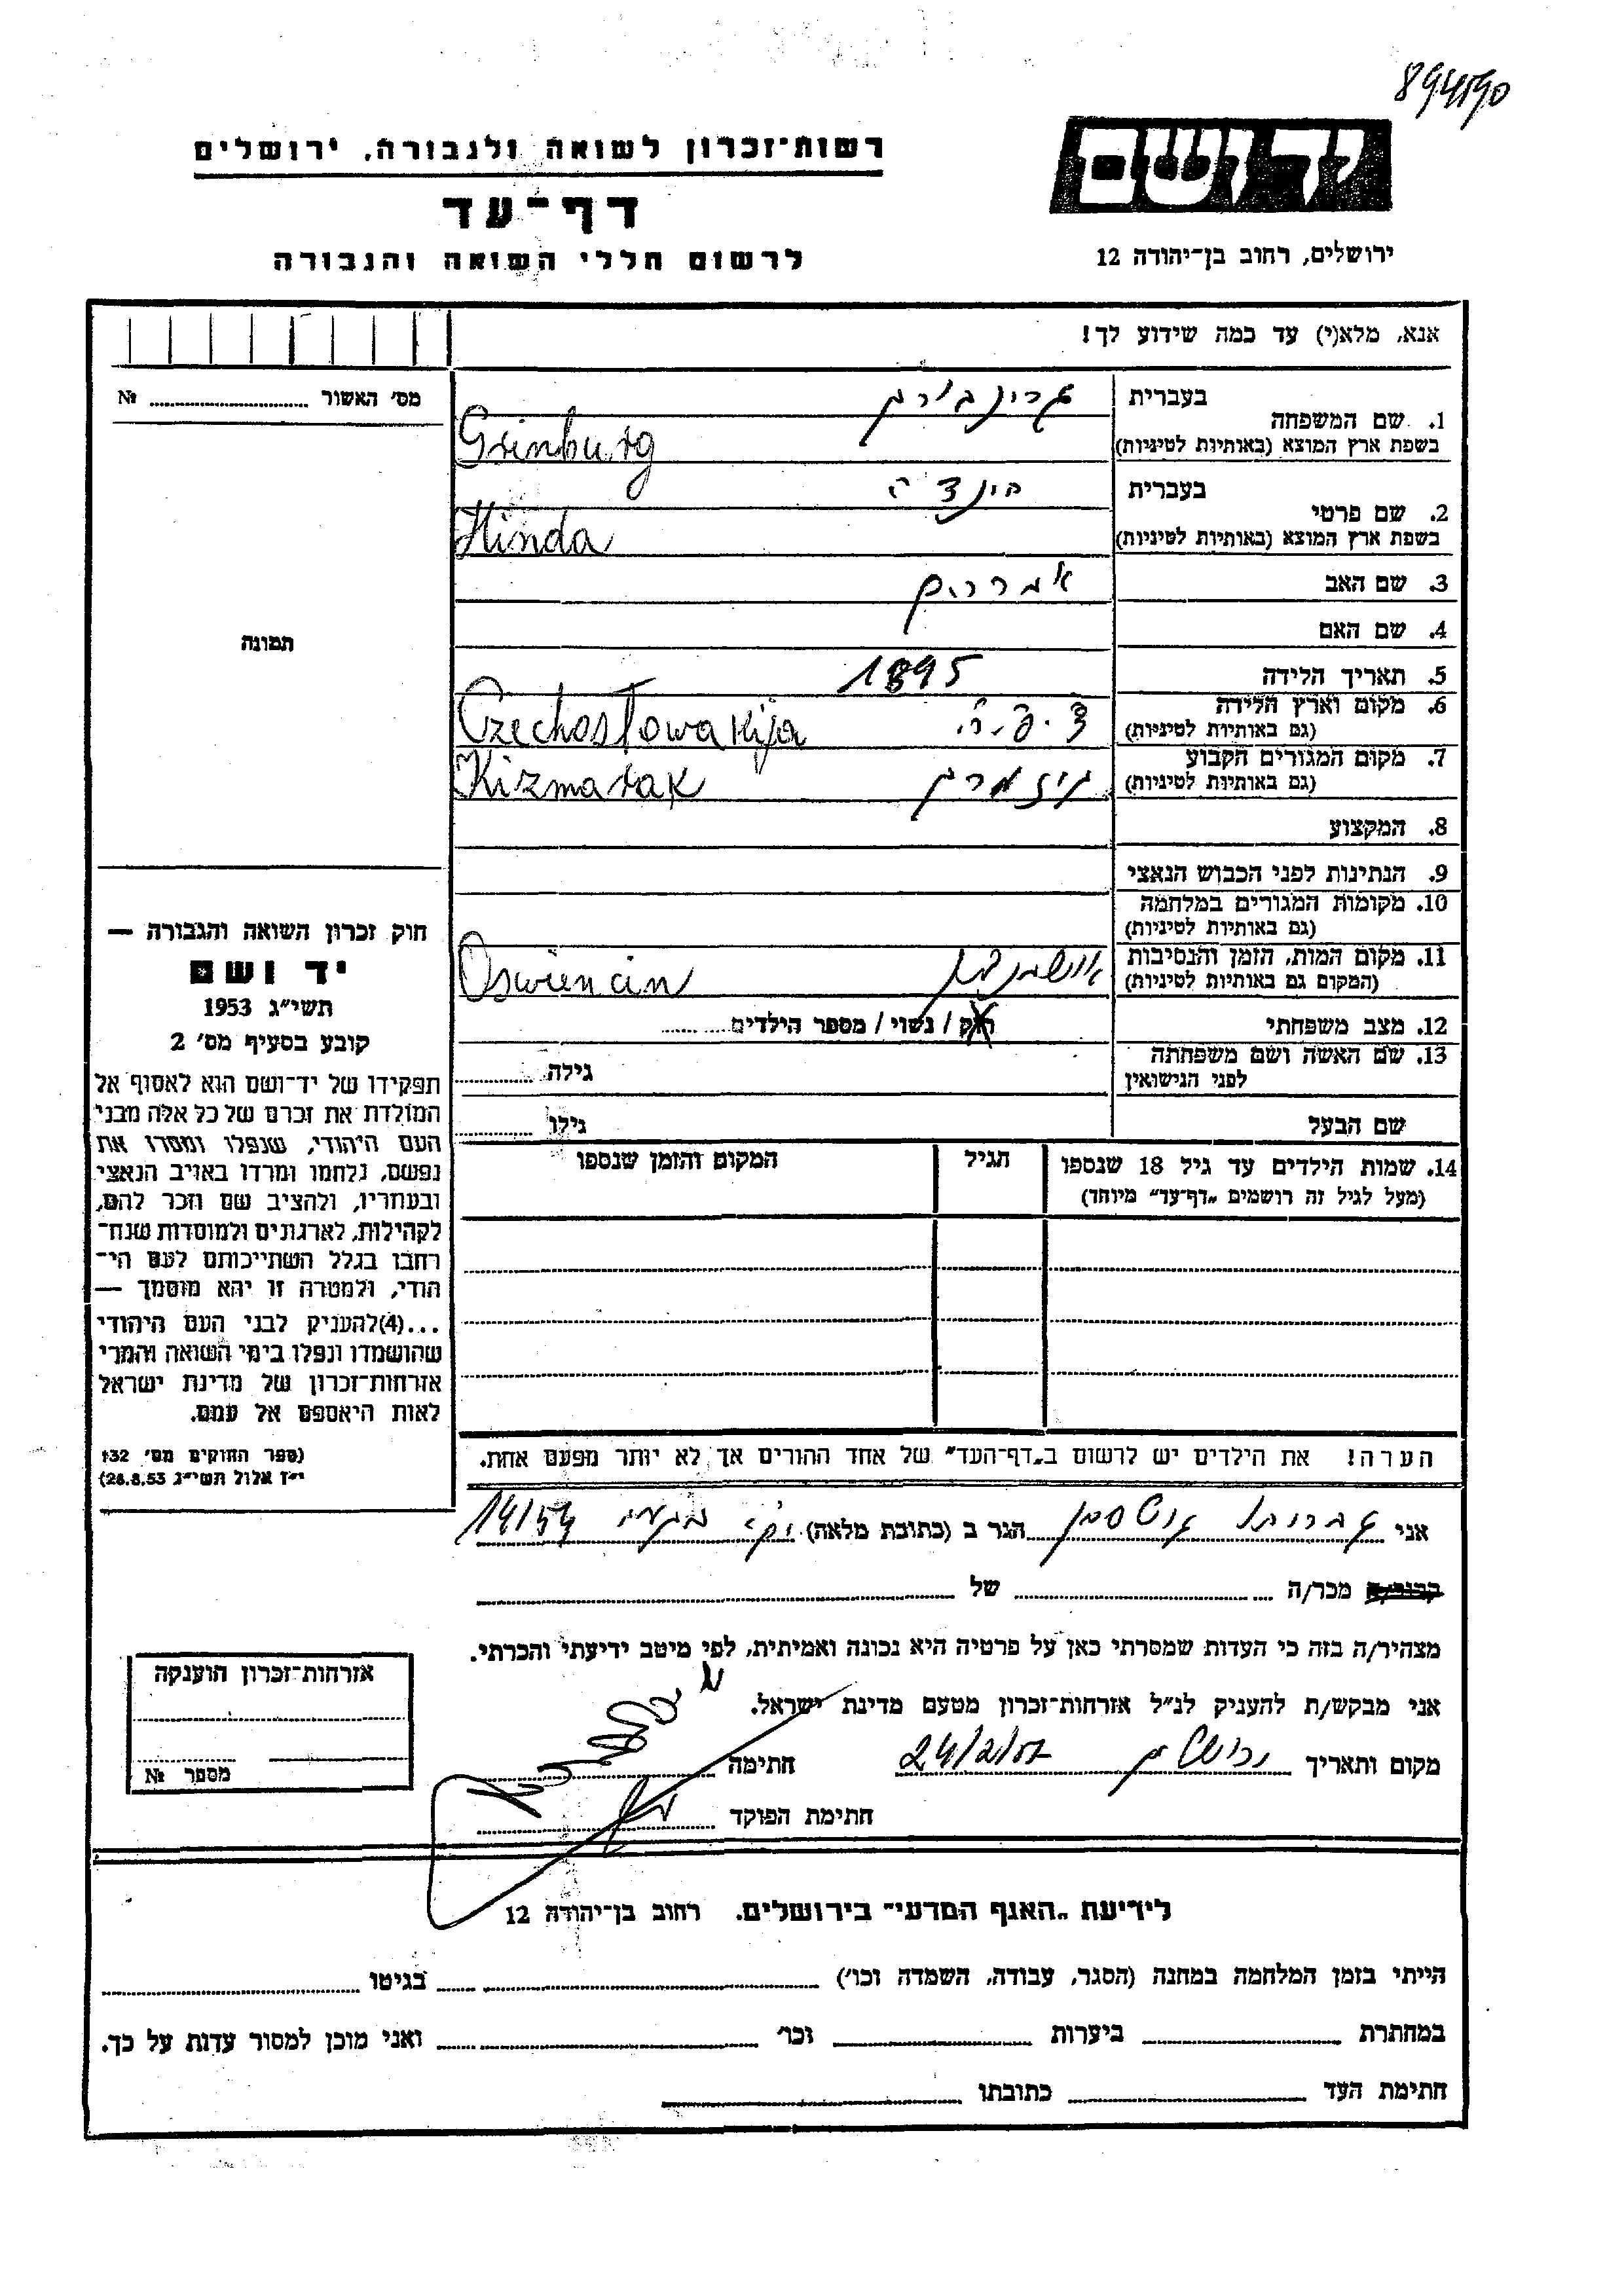 894190
רשות־זכרון לשואה ולגבורה, ירושלים
דף־עד
לרשום חללי השואה והגבורה
יד ושם
ירושלים, רחוב בן־יהודה 12
אנא, מלא(י) עד כמה שידוע לך!
מס' האשור № 
1. שם המשפחה בעברית גרינבורג
בשפת ארץ המוצא (באותיות לטיניות) Grinburg
2. שם פרטי בעברית הינדה
בשפת ארץ המוצא (באותיות לטיניות) Hinda
3. שם האב אפרים
4. שם האם
5. תאריך הלידה 1895
6. מקום וארץ הלידה צ'.כ.יה
(גם באותיות לטיניות) Czechosłowakija
7. מקום המגורים הקבוע
(גם באותיות לטיניות) Kizmarak
8. המקצוע
9. הנתינות לפני הכבוש הנאצי
10. מקומות המגורים במלחמה
(גם באותיות לטיניות)
11. מקום המות, הזמן והנסיבות
(המקום גם באותיות לטיניות) Oswiencin
12. מצב משפחתי רוק / נשוי / מספר הילדים
13. שם האשה ושם משפחתה גילה
לפני הנישואין
שם הבעל גילו
14. שמות הילדים עד גיל 18 שנספו הגיל המקום והזמן שנספו
(מעל לגיל זה רושמים „דף־עד" מיוחד)
הערה! את הילדים יש לרשום ב„דף־העד" של אחד ההורים אך לא יותר מפעם אחת.
תמונה
חוק זכרון השואה והגבורה —
יד ושם
תשי"ג 1953
קובע בסעיף מס' 2
תפקידו של יד־ושם הוא לאסוף אל
המולדת את זכרם של כל אלה מבני
העם היהודי, שנפלו ומסרו את
נפשם, נלחמו ומרדו באויב הנאצי
ובעוזריו, ולהציב שם וזכר להם,
לקהילות, לארגונים ולמוסדות שנח־
רבו בגלל השתייכותם לעם הי־
הודי, ולמטרה זו יהא מוסמך —
...(4) להעניק לבני העם היהודי
שהושמדו ונפלו בימי השואה והמרי
אזרחות־זכרון של מדינת ישראל
לאות היאספם אל עמם.
(ספר החוקים מס' 132
י"ז אלול תשי"ג 28.8.53)
אני הגר ב (כתובת מלאה) 14/54
קרוב/ה מכר/ה של
מצהיר/ה בזה כי העדות שמסרתי כאן על פרטיה היא נכונה ואמיתית, לפי מיטב ידיעתי והכרתי.
אני מבקש/ת להעניק לנ"ל אזרחות־זכרון מטעם מדינת ישראל.
מקום ותאריך ירושלים 24/2/57 חתימה
חתימת הפוקד
אזרחות־זכרון הוענקה
מספר №
לידיעת „האגף המדעי" בירושלים. רחוב בן־יהודה 12
הייתי בזמן המלחמה במחנה (הסגר, עבודה, השמדה וכו') בגיטו
במחתרת ביערות וכו' ואני מוכן למסור עדות על כך.
חתימת העד כתובתו